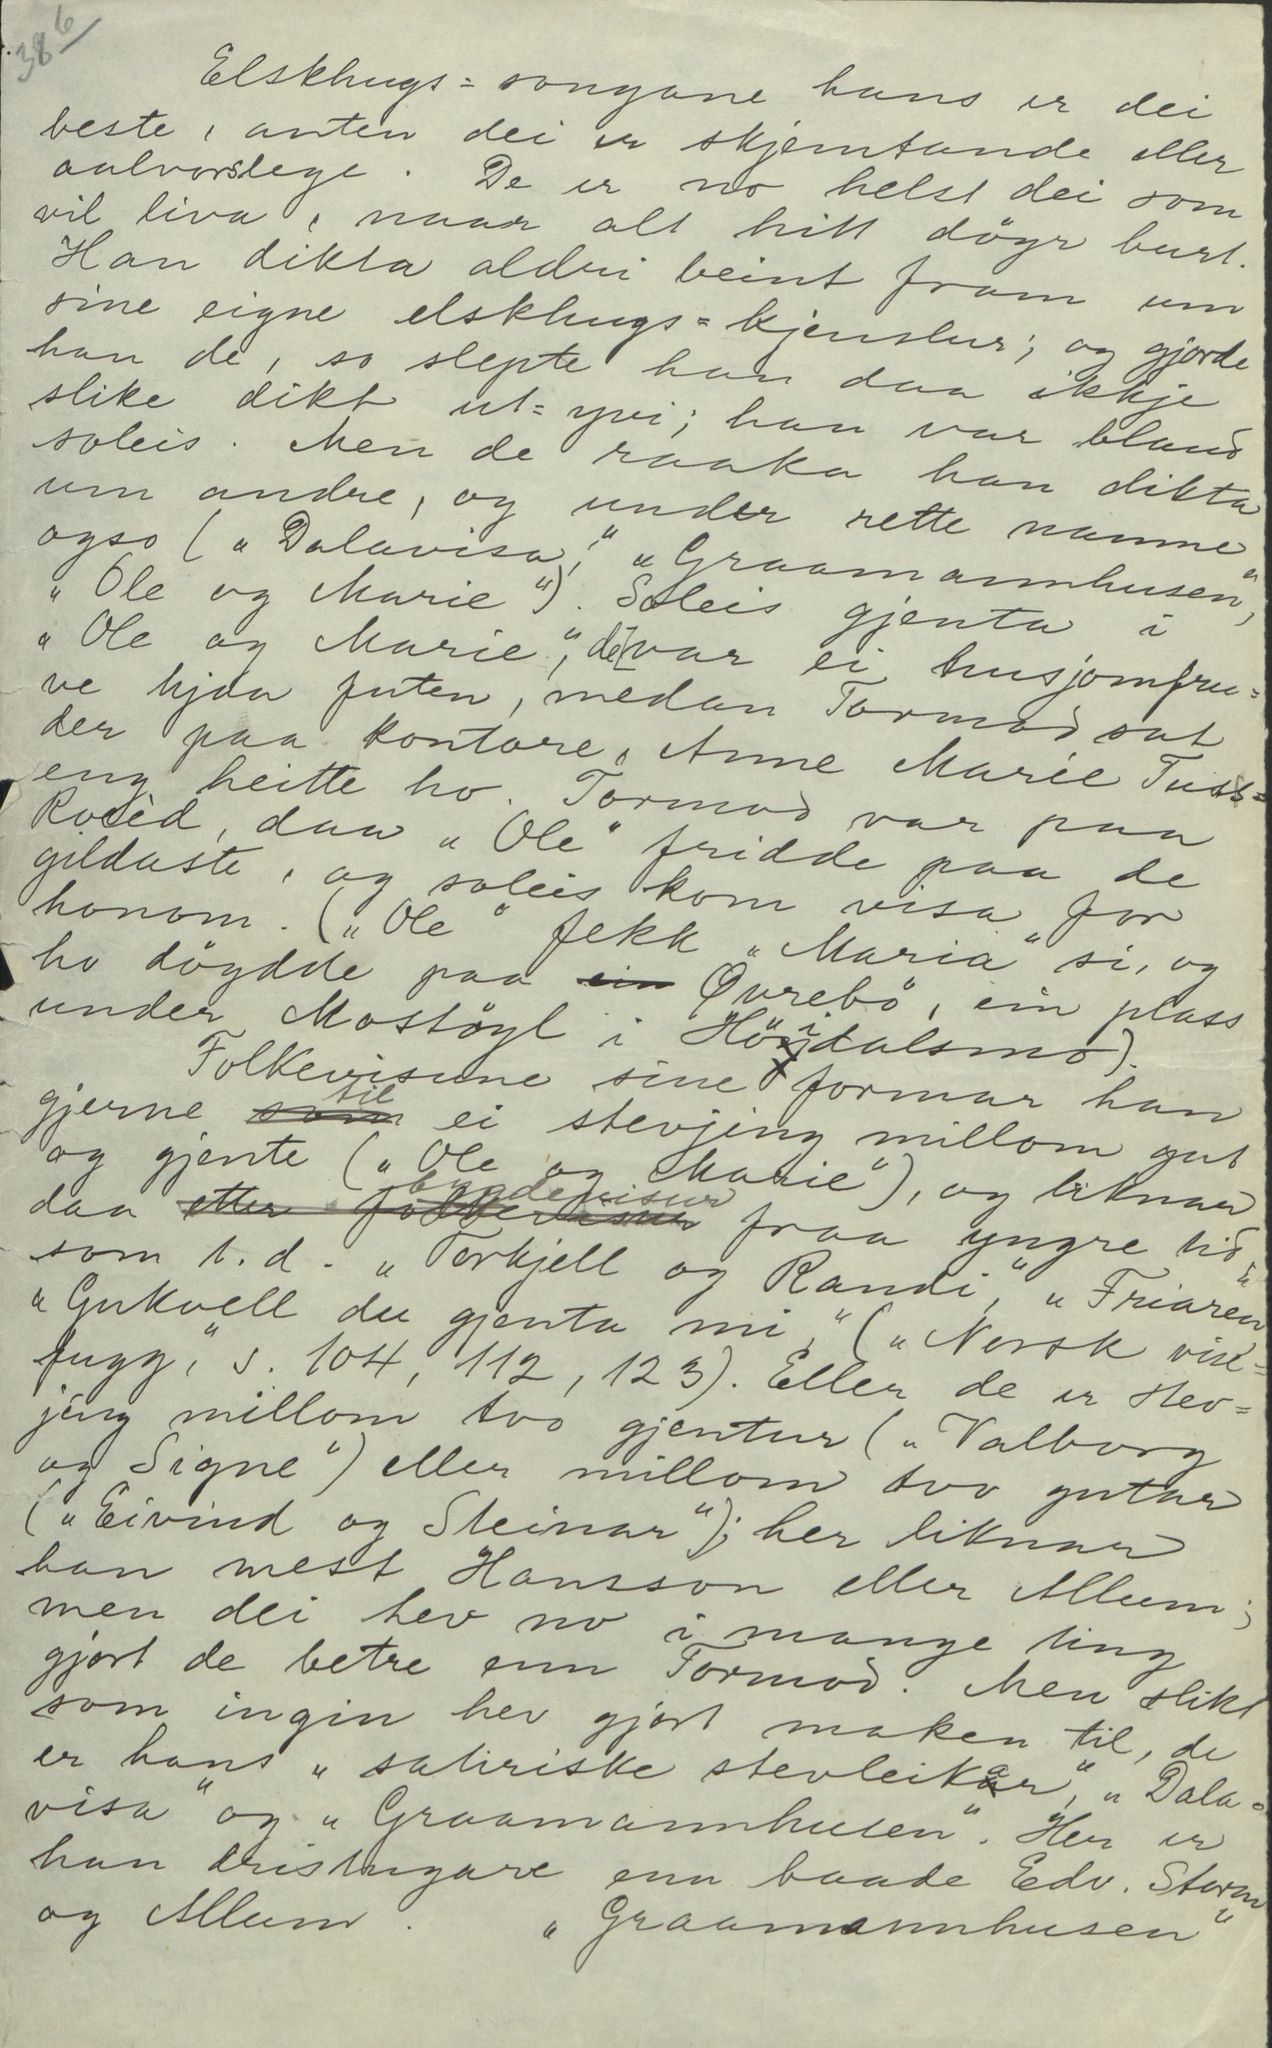 38 6
Elskhugs=songane hans er dei
beste, anten dei er skjemtande eller
aalvorslege. De er no helst dei som
vil liva, naar alt hitt döyr burt.
Han dikta aldri beint fram um
sine eigne elskhugs=kjenslur; og gjorde
han de, so slepte han daa ikkje
slike dikt ut=yvi; han var bland
soleis. Men de raaka han dikta
um andre, og under rette namne
ogso („Dalavisa," „Graamannhusen",
„Ole og Marie"). Soleis gjenta i
„Ole og Marie", de var ei husjomfru=
ve hjaa futen, medan Tormod sat
der paa kontore, Anne Marie Tuss=
eng heitte ho. Tormod var paa
Roeèd, daa „Ole" fridde paa de
gildaste, og soleis kom visa for
honom. („Ole" fekk „Maria" si, og
ho döydde paa ein Øvrebö, ein plass
under Mostöyl i Höidalsmo).
Folkevisune sine formar han
gjerne som til ei stevjing millom gut
og gjente („Ole og Marie"), og liknar
daa etter folkevisur bygdevisur fraa yngre tid,
som t.d. „Torkjell og Randi," „Friaren"
„Gukvell du gjenta mi," („Norsk vise=
fugg," s. 104, 112, 123). Eller de er stev=
jing millom tvo gjentur („Valborg
og Signe") eller millom tvo gutar
(„Eivind og Steinar"); her liknar
han mest Hansson eller Allum;
men dei hev no i mange ting
gjort de betre enn Tormod. Men slikt
som ingin hev gjort maken til, de
er hans „satiriske stevleikar," „Dala=
visa" og „Graamannhusen". Her er
han dristugare enn baade Edv. Storm
og Allum. „Graamannhusen"